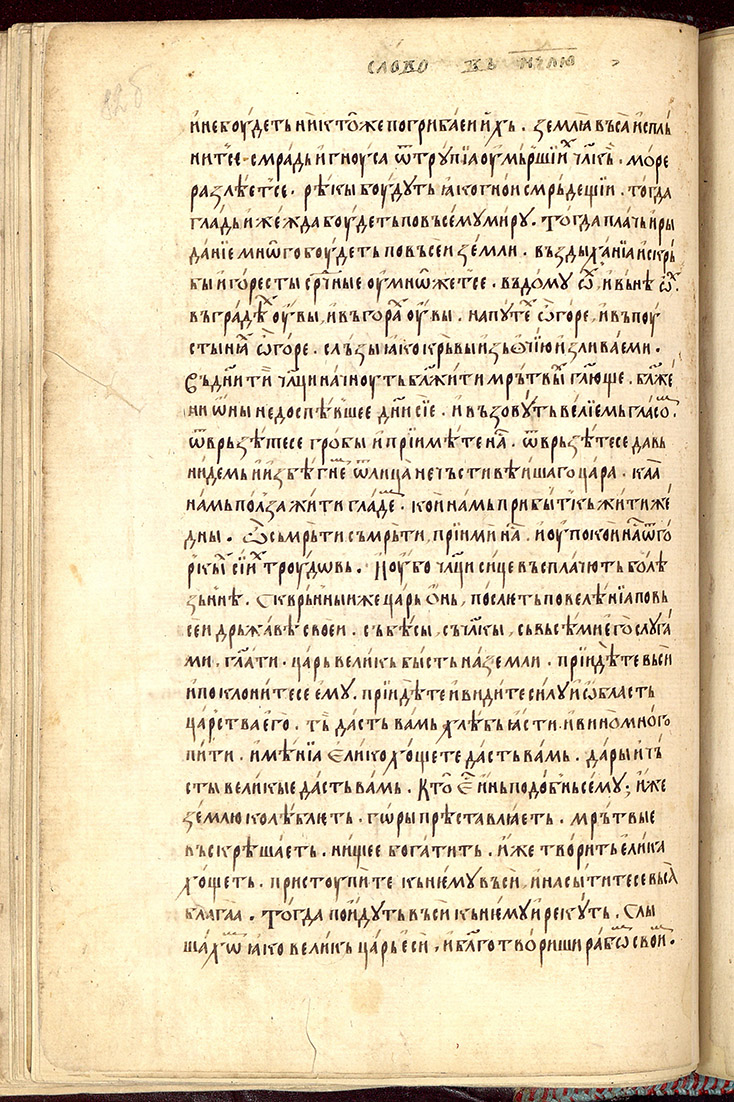 слово въ нєлю
82б
и не боудеть никтоже погрибаеи ихь . землꙗ въса испль
нитсе смрадь и гноуса ѿ трупїа оумьршїих члкь . море
разлѣетсе . рѣкы боудуть ꙗко гнои смрьдещїи . тогда
гладь и жежда боудеть по въсему миру . тогда плачь и ры
данїе мнѡго боудеть по въсеи земли . въздыханїа и скрь
бы и горести срⷣчные оумнѡжетсе . въ дому ѡⷯ и вьнѣ ѡⷯ .
въ градѣⷯ оувы , и въ гораⷯ оувы . на путеⷯ ѡ горе , и въ поу
стынꙗⷯ ѡ горе . сльзы ꙗко крьвы изь ѻчїю изливаеми .
Въ дни ти члци начноуть блажити мрьтвыⷯ глюще . блаже
ни ѡны недоспѣвшее дни сїе . и възовуть велїемь гласоⷨ .
ѿврьзѣтесе гробы и прїимѣте наⷭ . ѿврьзѣтесе да вь
нидемь и избѣгнеⷨ ѿ лица нечьстивѣишаго цара . каа
намь полза жити гладеⷨ . кои намь прибытькь жити же
дны . Ѡ сьмрьти сьмрьти , прїими наⷭ . и оупокои наⷭ ѿ го
ркыⷯ сїиⷯ троудѡвь . И оубо члци сице въсплачють болѣ
зьнѣ . Сквръныи же царь ѻнь , послеть повелѣнїа по вь
сеи дрьжавѣ своеи . сь бѣсы , сь члкы , сь вьсѣми его слуга
ми . глати . царь великь бысть на земли . прїидѣте въси
и поклонитесе ему . прїидѣте и видите силу и ѡбласть
царства его . ть дасть вамь хлѣбь ꙗсти . и вино много
пити . имѣнїа елико хощете дасть вамь . дары и чь
сты великые дасть вамь . Кто еⷭ инь подобнь сему ; иже
землю колѣблеть . гѡры прѣставлꙗеть . мрьтвые
въскрѣшаеть . нищее богатить . иже творить елика
хощеть . пристоупите кь нему въси , и насытитесе вьсѧ
благаа . Тогда поидуть въси кь нему и рекуть . Слы
шахѡⷨ ꙗко великь царь еси , и благо твориши рабѡⷨ своиⷨ .